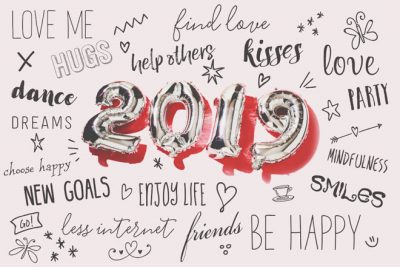 LOVE ME
find love
HUGS
help others
kisses
love
dance
2019
PARTY
DREAMS
choose happy
MINDFULNESS
NEW GOALS
ENJOY LIFE
SMILES
GO!
less internet
friends
BE HAPPY